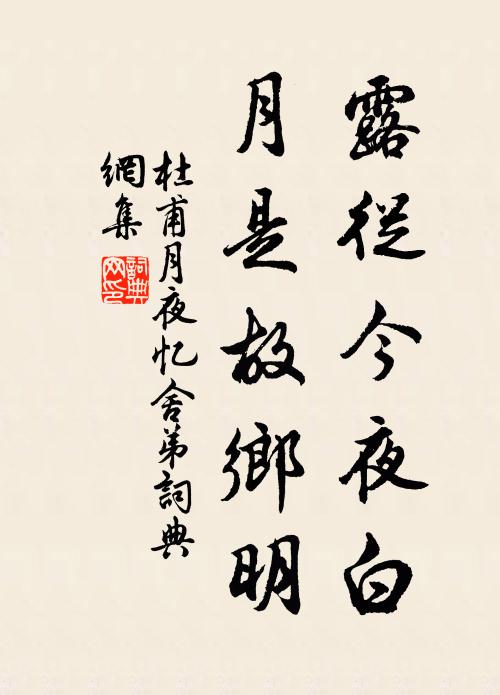 露從今夜白
月是故鄉明
杜甫月夜忆舍弟詞典
網集
詞典
网印